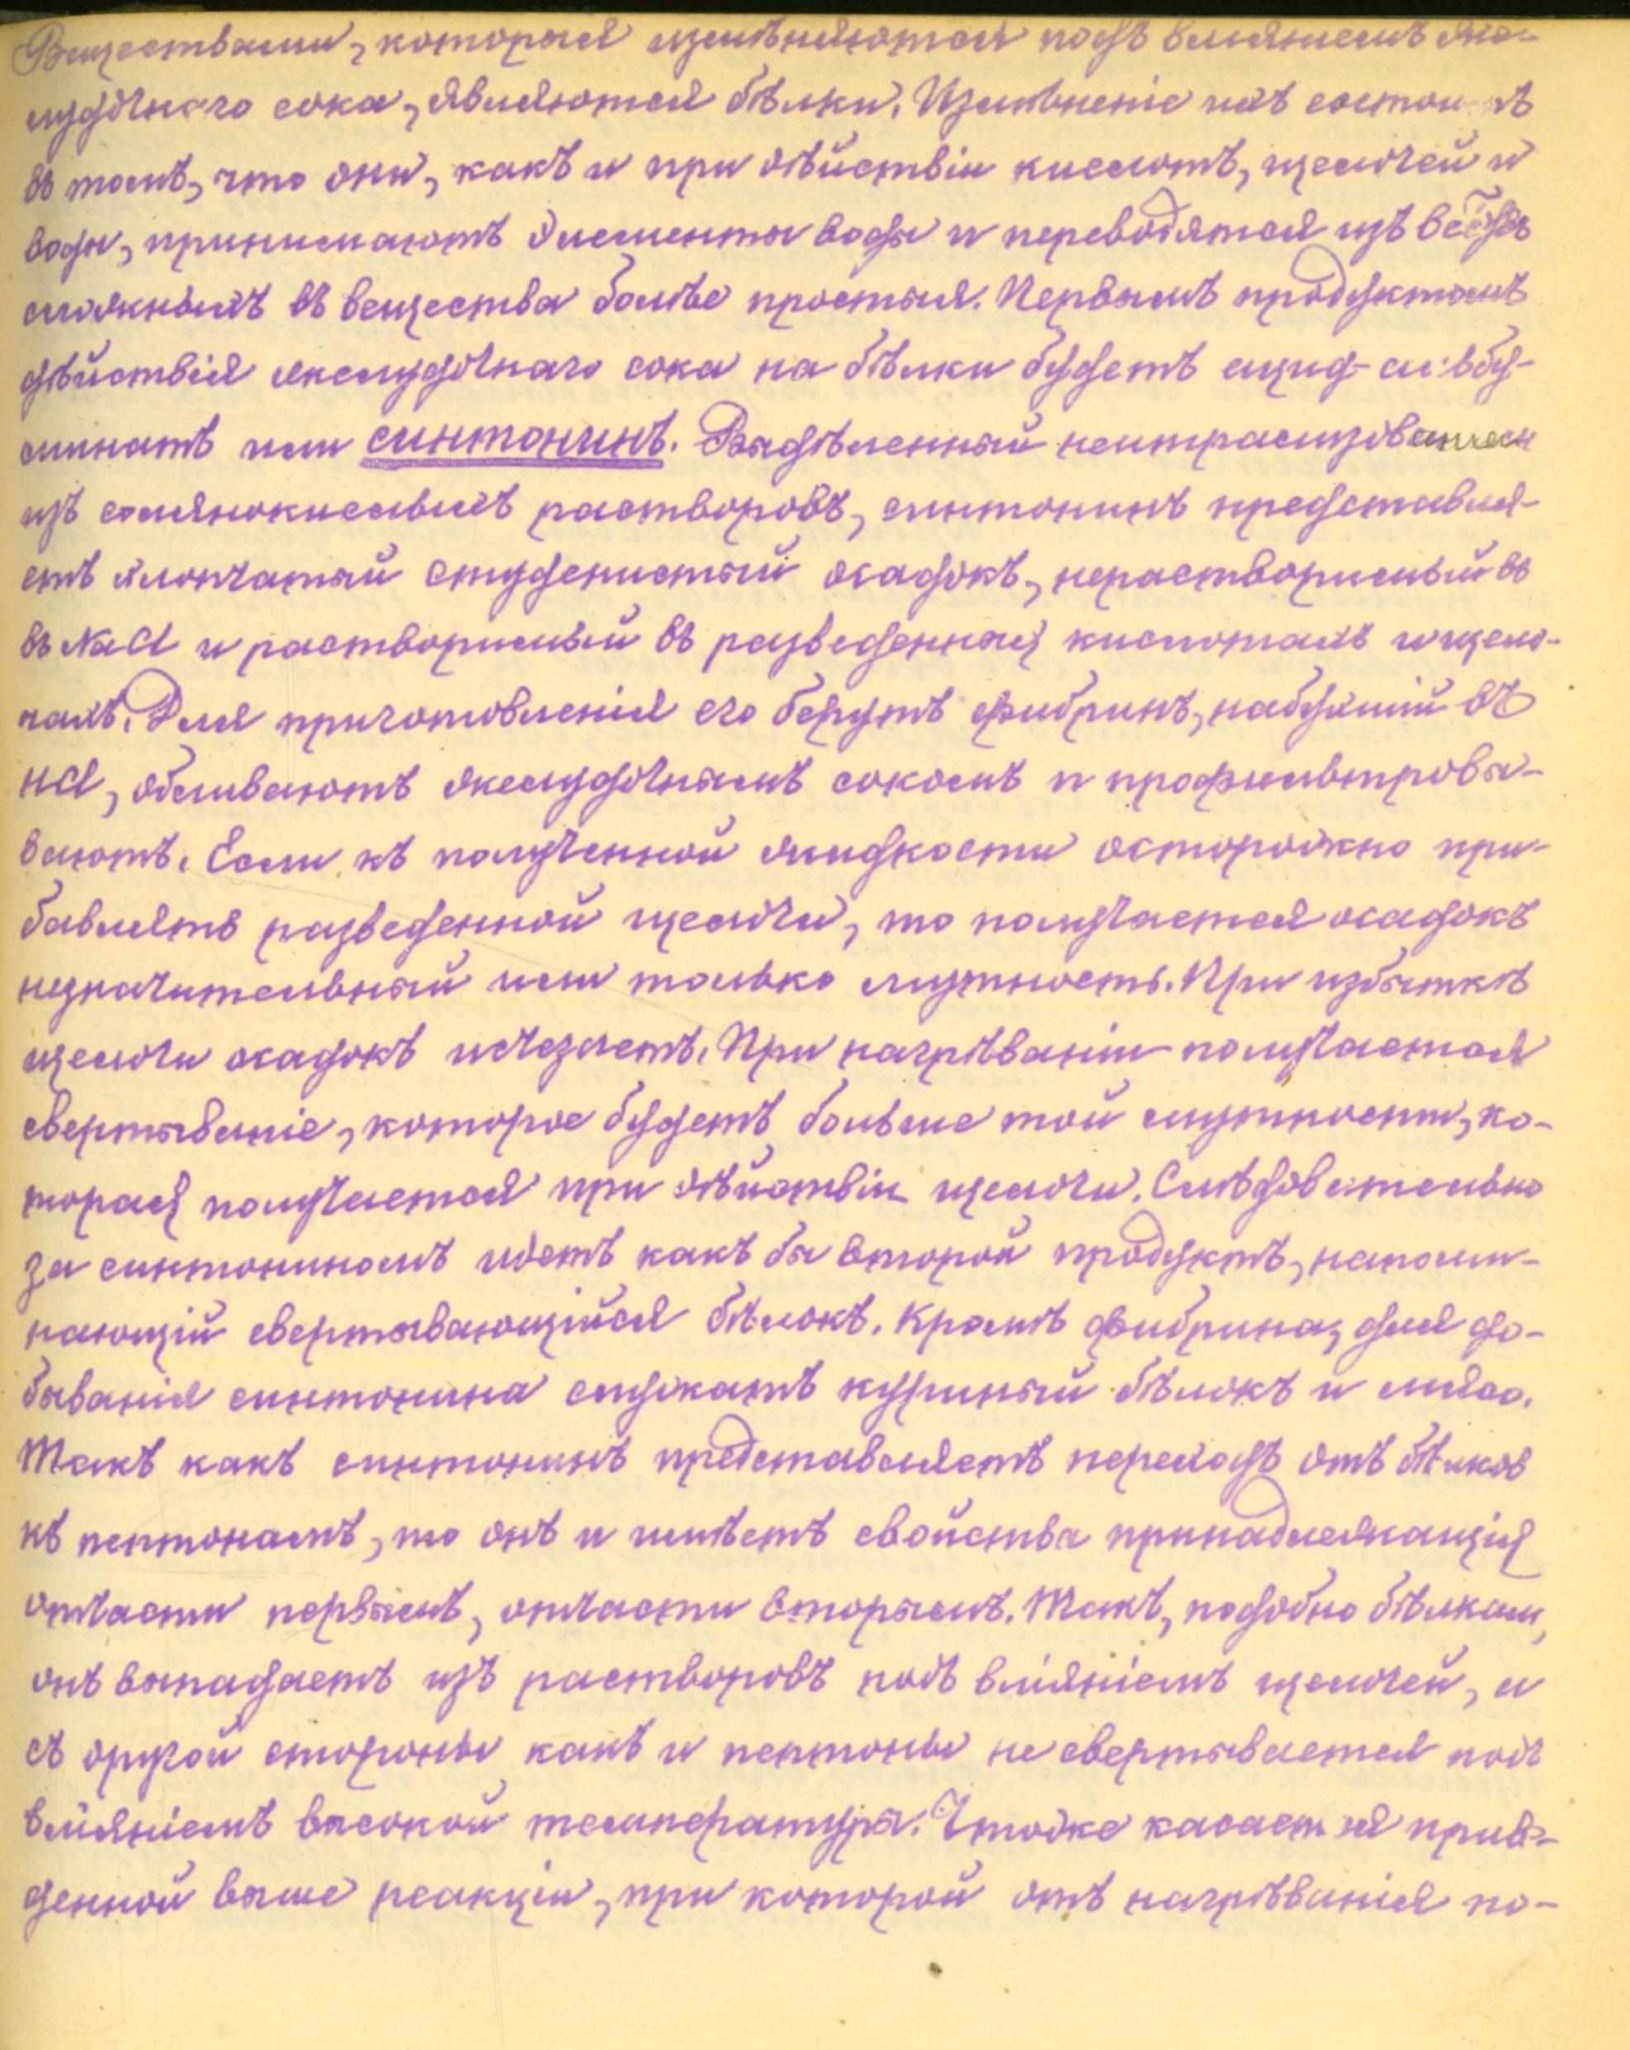 Веществами, которыя изменѣняются подъ вліянiемъ же-
лудочнаго сока, являются бѣлки. Измѣненіе ихъ состоитъ
въ томъ, что они, какъ и при дѣйствіи кислотъ, щелочей и
воды, принимаютъ элементы воды и переводятся изъ веществъ
сложныхъ въ вещества болѣе простыя. Первымъ продуктомъ
дѣйствія желудочнаго сока на бѣлки будетъ ацид-альбу-
минатъ или синтонинъ. Выдѣленный нейтрализованіем
изъ солянокислыхъ растворовъ, синтонинъ представля-
етъ хлопчатый студенистый осадокъ, нерастворимый въ
въ NaCl и растворимый въ разведенныхъ кислотахъ и щело-
чахъ. Для приготовленія его берутъ фибринъ, набухшій въ
HCl, обливаютъ желудочнымъ сокомъ и профильтровы-
ваютъ. Если къ полученной жидкости осторожно при-
бавлять разведенной щелочи, то получается осадокъ
незначительный или только мутность. При избыткѣ
щелочи осадокъ исчезаетъ. При нагрѣваніи получается
свертываніе, которое будетъ больше той мутности, ко-
торая получается при дѣйствіи щелочи. Слѣдовательно
за синтониномъ идетъ какъ бы второй продуктъ, напоми-
нающій свертывающійся бѣлокъ. Кромѣ фибрина, для до-
быванія синтонина служатъ куриный бѣлокъ и мясо.
Такъ какъ синтонинъ представляетъ переходъ отъ бѣлков
къ пептонамъ, то онъ и имѣетъ свойства принадлежащія
отчасти первымъ, отчасти вторымъ. Такъ, подобно бѣлкам,
онъ выпадаетъ изъ растворовъ подъ вліяніемъ щелочей, и
съ другой стороны какъ и пептоны не свертывается подъ
вліяніемъ высокой температуры. Чтоже касается приве-
денной выше реакціи, при которой отъ нагрѣванія по-